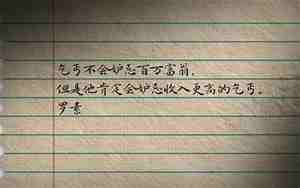 乞丐不会妒忌百万富翁，
但是他肯定会妒忌收入更高的乞丐。
罗素